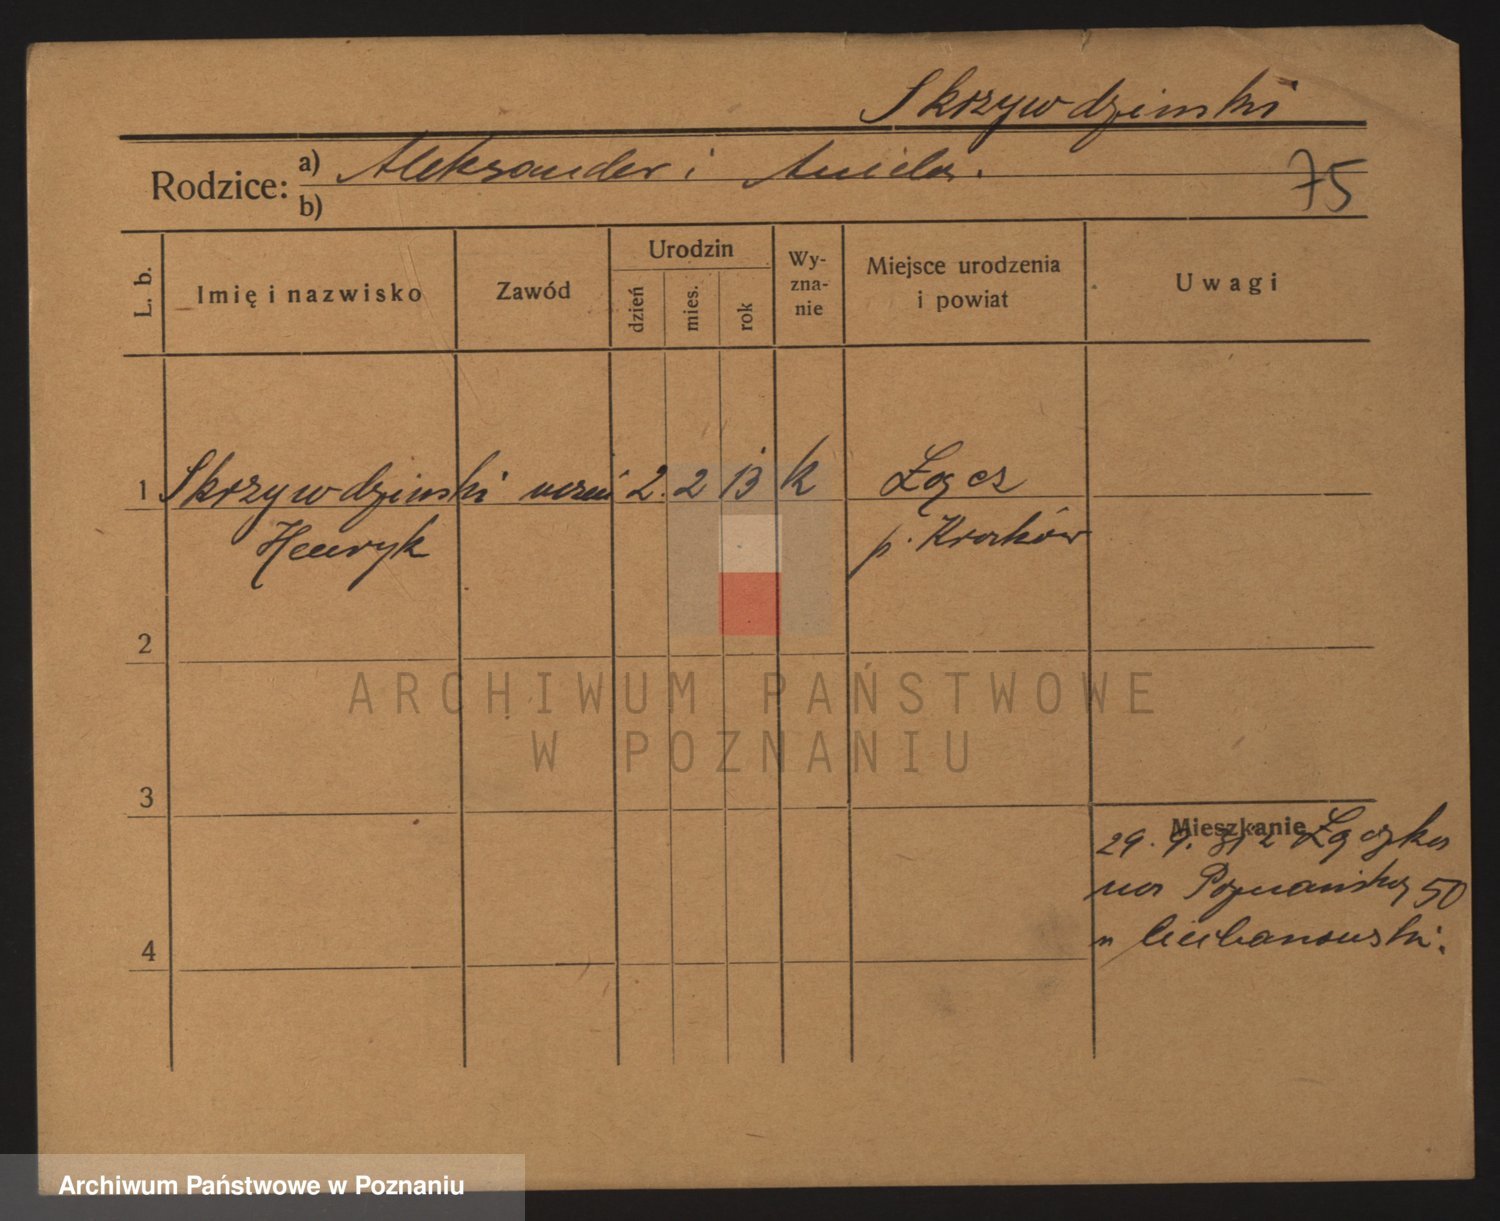 Skrzywdzinski
Rodzice: a) Aleksander i Aniela.
b)
75
L. b.
Imię i nazwisko
Zawód
Urodzin
dzień
mies.
rok
Wy-
zna-
nie
Miejsce urodzenia
i powiat
Uwagi
1 Skrzywdzinski uczeń 2. 2 13 k Łącz
Henryk p. Kraków
2
ARCHIWUM PAŃSTWOWE
W POZNANIU
3
Mieszkanie
29. 9. 31 z
na Poznańską 50
4
Archiwum Państwowe w Poznaniu